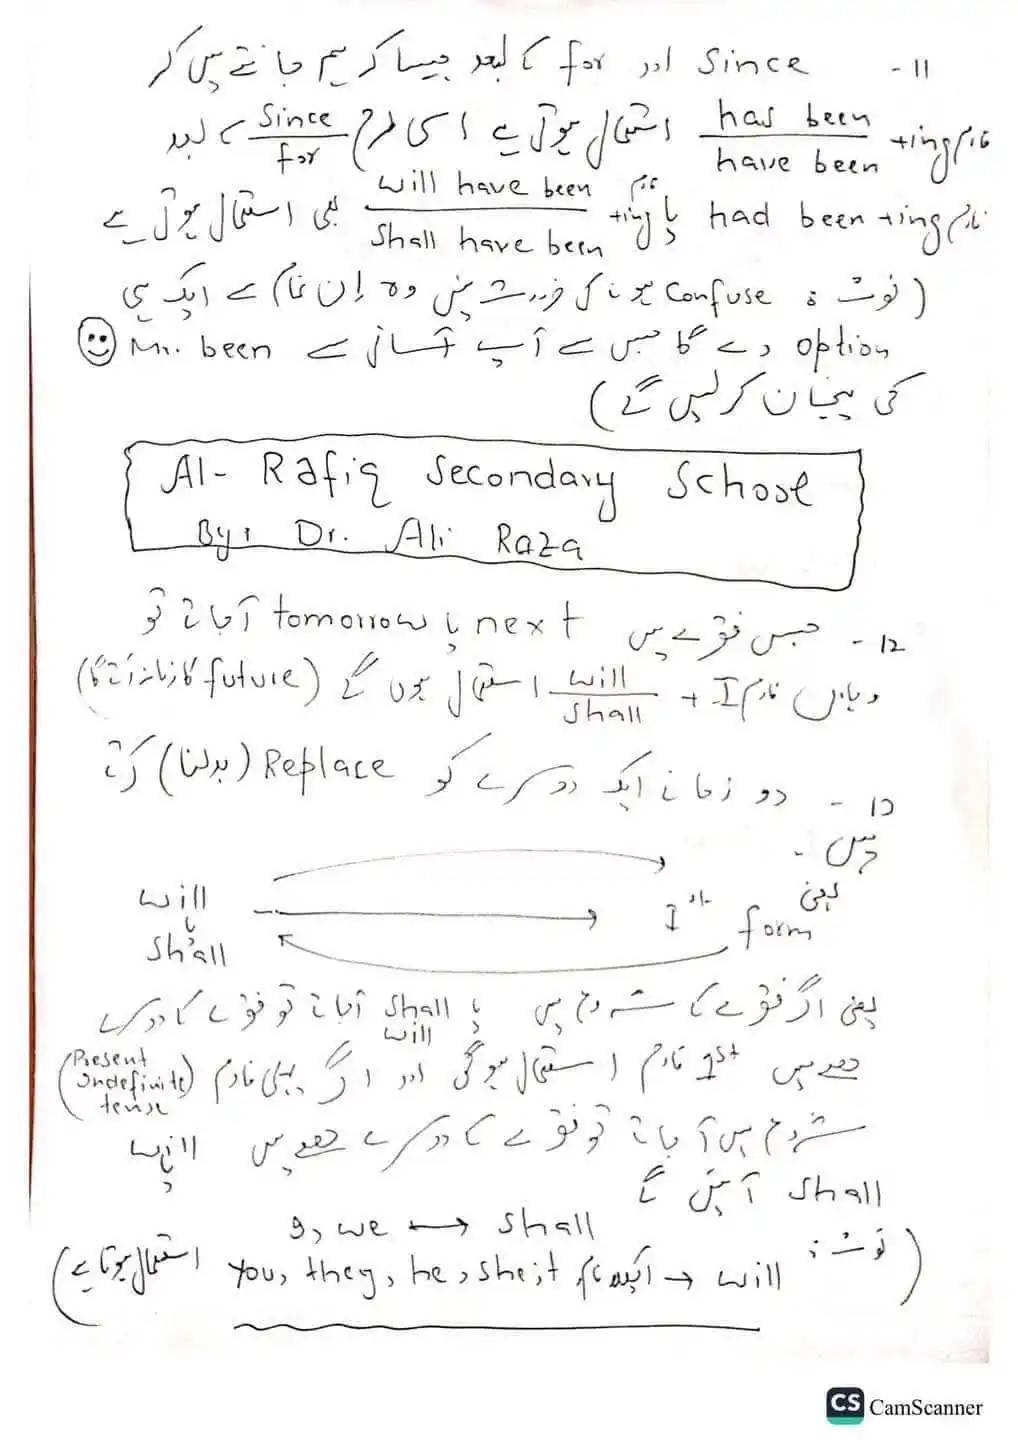 11- since اور for کے بعد جیسا کہ ہم جانتے ہیں کہ
has been / have been +ing فارم استعمال ہوتی ہے اسی طرح since / for کے بعد
had been +ing فارم یا will have been / shall have been +ing فارم بھی استعمال ہوتی ہے
(نوٹ: confuse ہونے کی ضرورت نہیں وہ ان تمام سے ایک ہی
option دے گا جس سے آپ آسانی سے Mr. been
کی پہچان کر لیں گے)
Al-Rafiq Secondary School
By: Dr. Ali Raza
12- جس فقرے میں next یا tomorrow آجائے تو
وہاں will / shall + I فارم استعمال ہوں گے (future کا زمانہ آئے گا)
13- دو زمانے ایک دوسرے کو Replace (بدلنا) کرتے
ہیں -
will یا shall
یعنی Ist form
یعنی اگر فقرے کے شروع میں shall یا will آجائے تو فقرے کے دوسرے
حصے میں 1st فارم استعمال ہوگی اور اگر پہلی فارم (Present Indefinite tense)
شروع میں آ جائے تو فقرے کے دوسرے حصے میں will یا
shall آئیں گے
I, we ⟷ shall
(نوٹ: You, they, he, she, it, ایک نام → will استعمال ہوتا ہے)
CS CamScanner